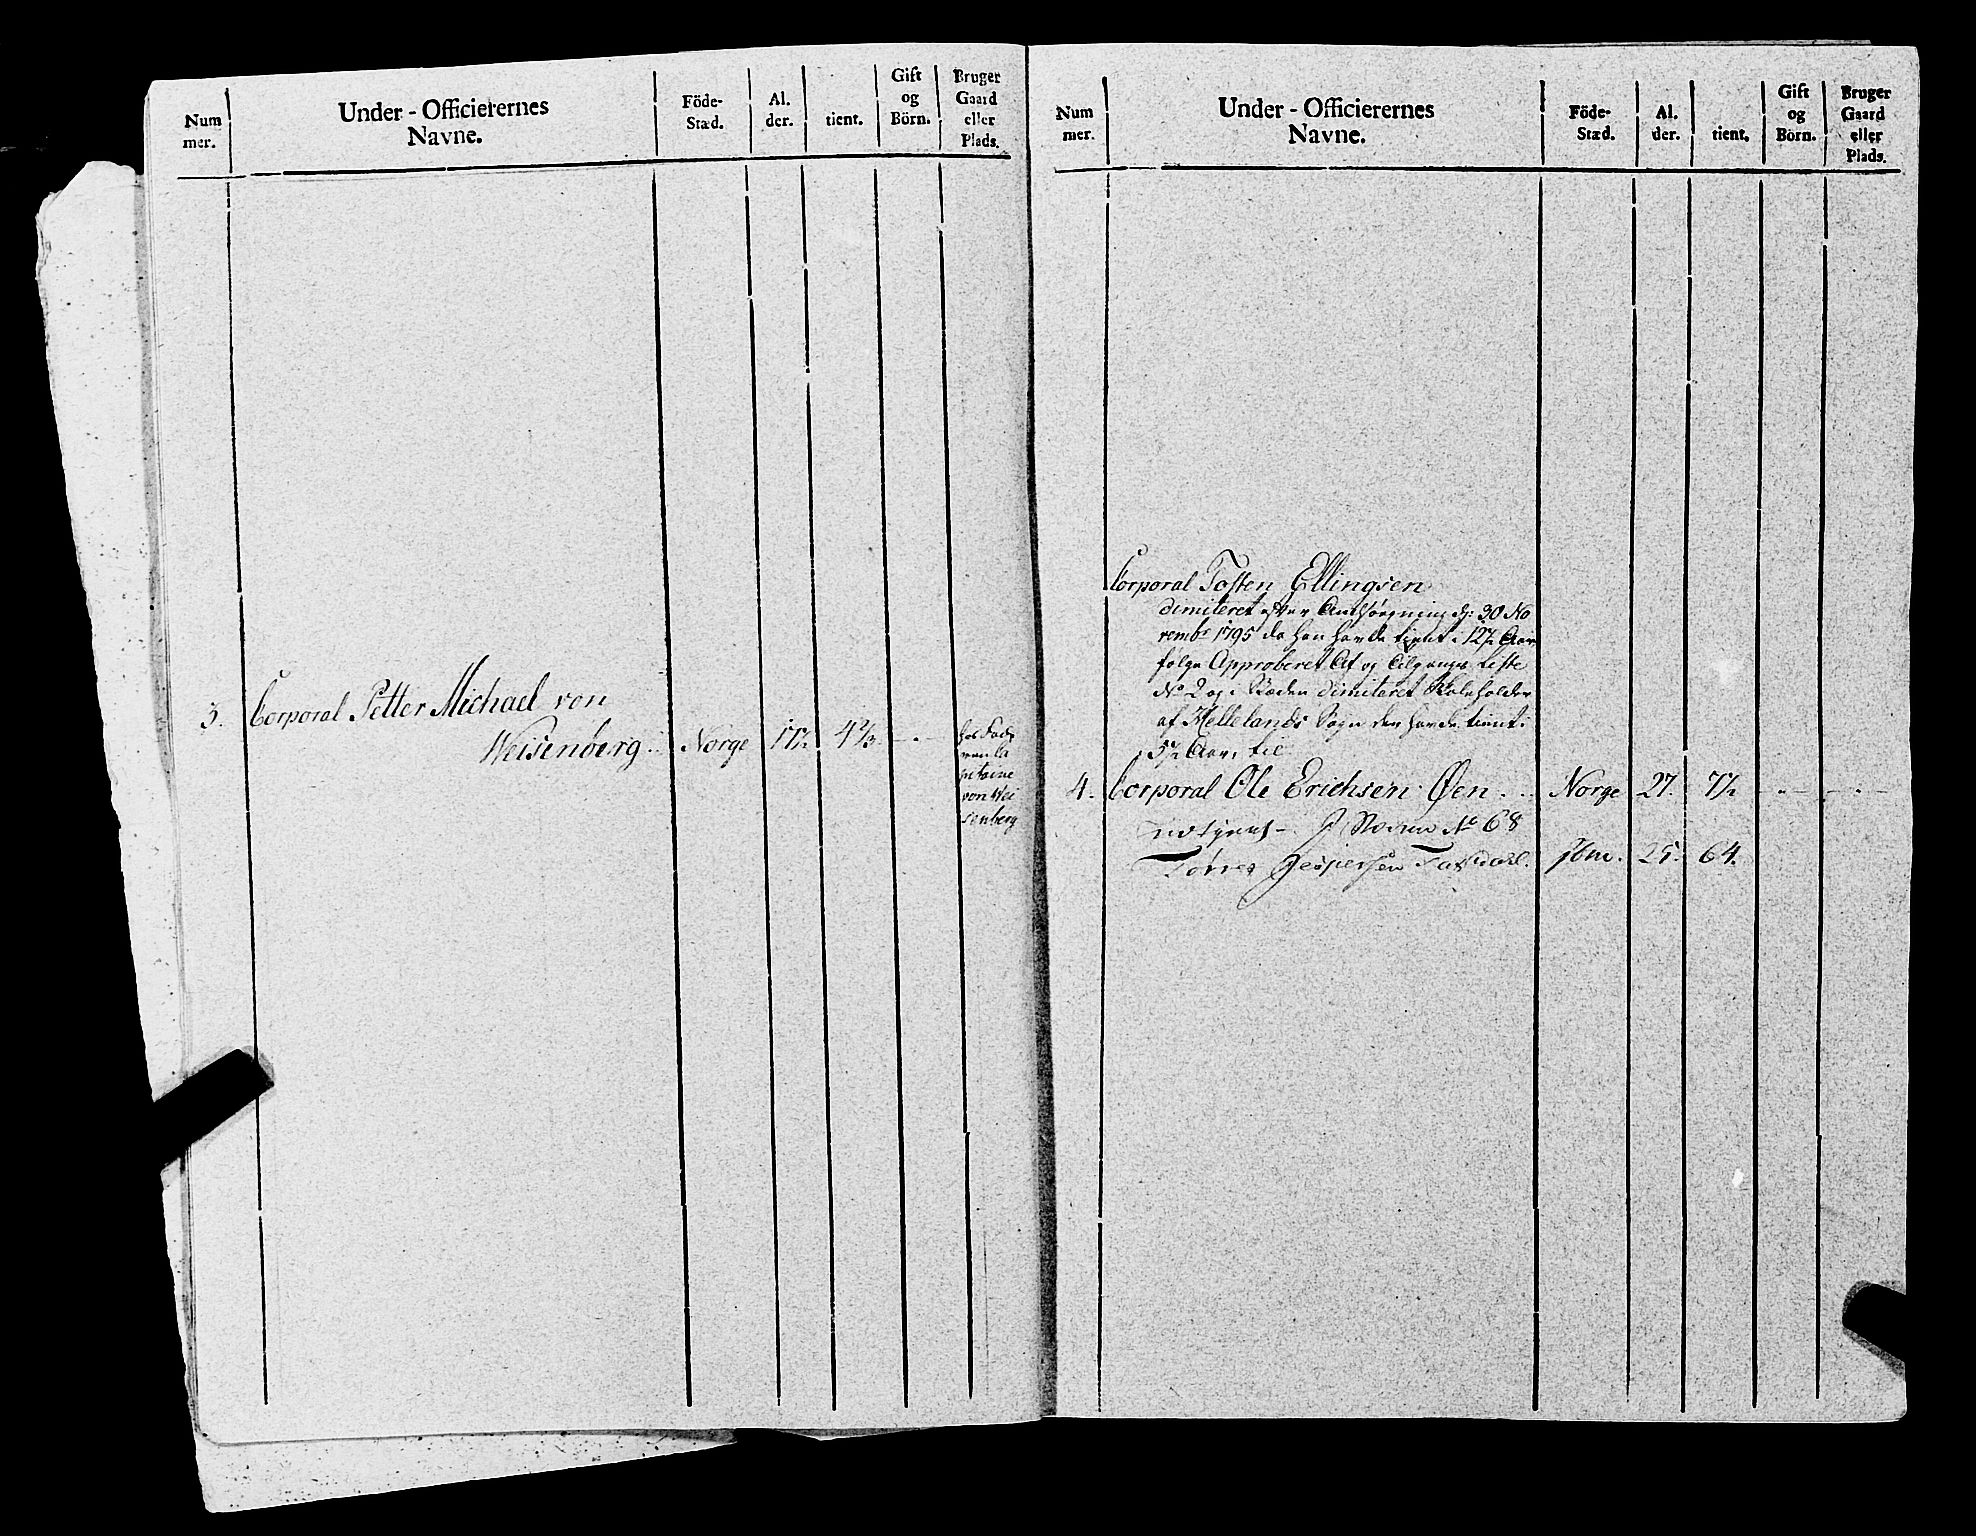 Num
mer.
Under - Officierernes
Navne.
Föde-
Stæd.
Al.
der.
tient.
Gift
og
Börn.
Bruger
Gaard
eller
Plads.
3. Corporal Petter Michael von
Weisenberg Norge 17½ 4⅔
von Wei
senberg
Num
mer.
Under - Officierernes
Navne.
Föde-
Stæd.
Al.
der.
tient.
Gift
og
Börn.
Bruger
Gaard
eller
Plads.
Corporal Tosten Ellingsen
dimiteret efter 30 No
vembr 1795 da han havde tient i 12½ Aar,
følge Approberet Af og Tilgangs Liste
No 2 og i Stæden dimiteret
af Hellelands Sogn den havde tient i
5½ Aar, til
4. Corporal Ole Erichsen Øen Norge 27. 7½
No 68
Tørres Jespersen 25. 64.